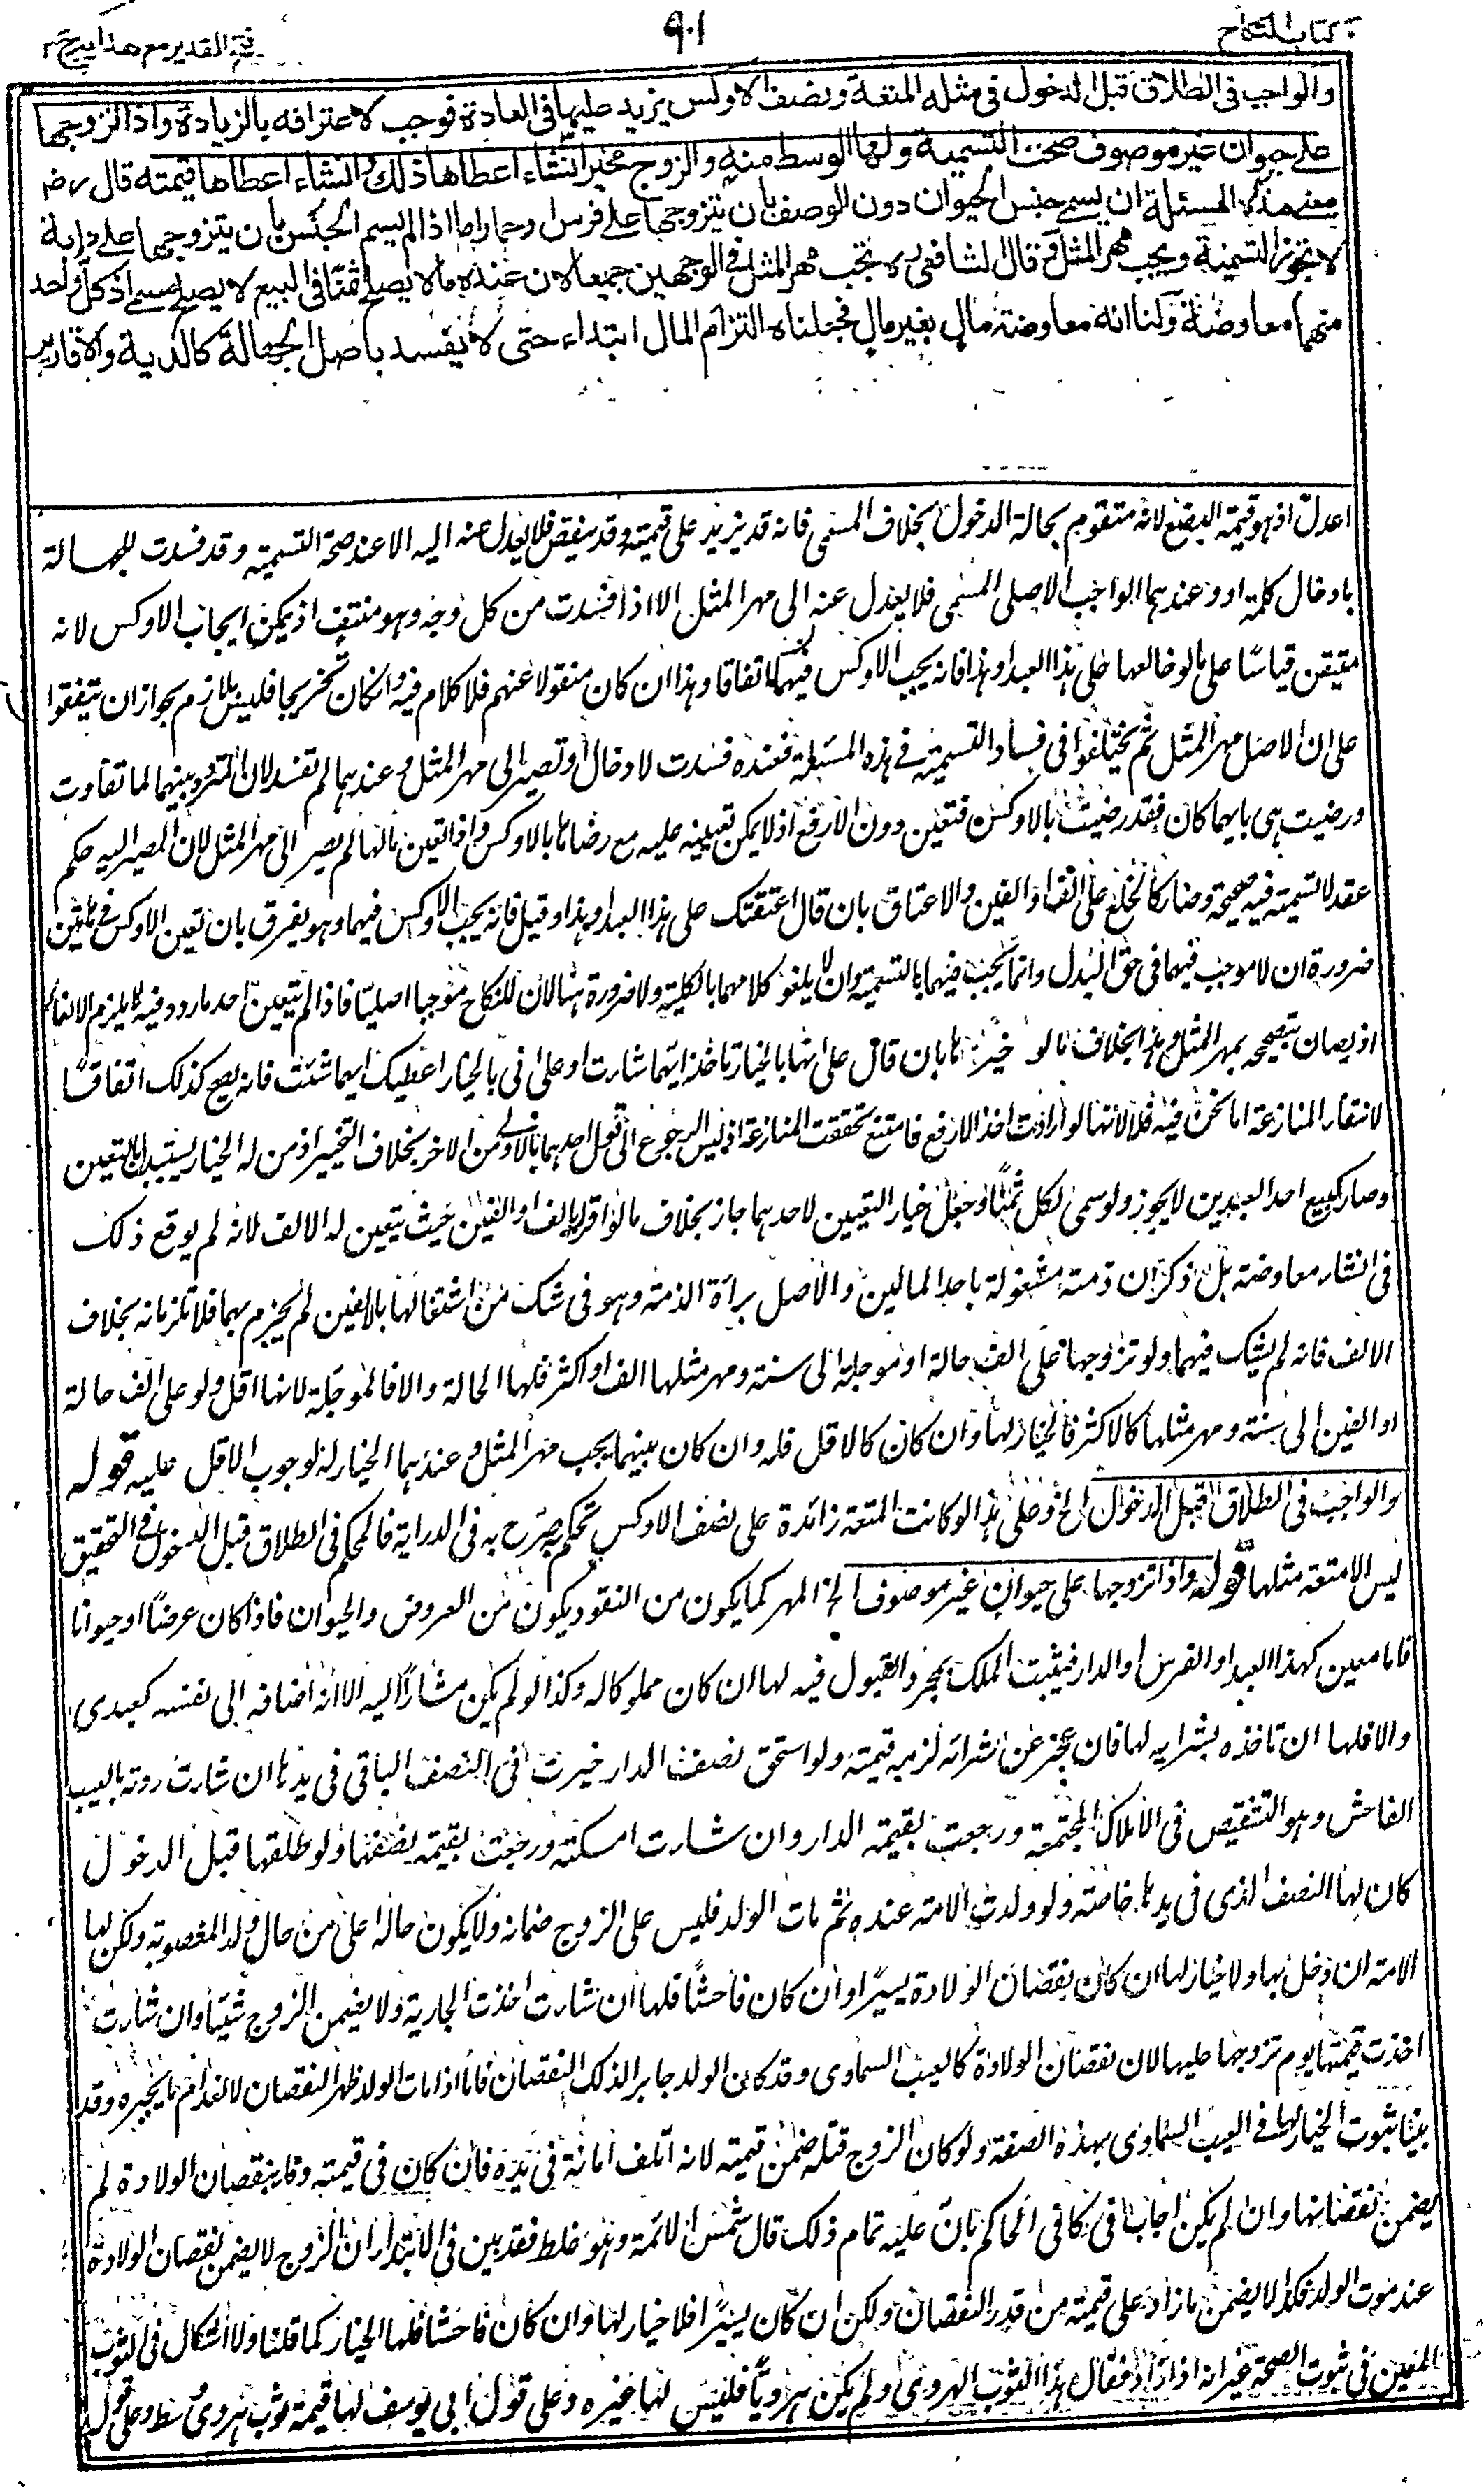 كتاب النكاح
٩٠١
فتح القدير مع هداية ج ٢
والواجب فى الطلاق قبل الدخول فى مثله المتعة ونصف الاوكس يزيد عليها فى العادة فوجب لاعترافه بالزيادة واذا تزوجها
على حيوان غير موصوف صحت التسمية ولها الوسط منه والزوج مخير ان شاء اعطاها ذلك وان شاء اعطاها قيمته قال رضـ
معنى هذه المسئلة ان يسمى جنس الحيوان دون الوصف بان يتزوجها على فرس او حمار اما اذا لم يسم الجنس بان يتزوجها على دابة
لا تجوز التسمية ويجب مهر المثل وقال الشافعى رح يجب مهر المثل فى الوجهين جميعا لان عنده ما لا يصلح ثمنا فى البيع لا يصلح مسمى اذ كل واحد
منهما معاوضة ولنا انه معاوضة مال بغير مال فجعلناه التزام المال ابتداء حتى لا يفسد باصل الجهالة كالدية والاقارير
اعدل اذ هو قيمة البضع لانه متقوم بحالة الدخول بخلاف المسمى فانه قد يزيد على قيمته وقد ينقص فلا يعدل عنه اليه الا عند صحة التسمية وقد فسدت للجهالة
بادخال كلمة او وعندهما الواجب الاصلى المسمى فلا يعدل عنه الى مهر المثل الا اذا فسدت من كل وجه وهو منتف اذ يمكن ايجاب الاوكس لانه
متيقن قياسا على ما لو خالعها على هذا العبد او هذا فانه يجب الاوكس فيهما اتفاقا وهذا ان كان منقولا عنهم فلا كلام فيه وان كان تخريجا فليس بلازم بجواز ان يتفقوا
على ان الاصل مهر المثل ثم يختلفوا فى فساد التسمية فى هذه المسئلة فعنده فسدت لادخال او تصير الى مهر المثل وعندهما لم تفسد لان المتردد بينهما لما تفاوت
ورضيت هى بايهما كان فقد رضيت بالاوكس فتعين دون الارفع اذ لا يمكن تعيينه عليه مع رضاها بالاوكس واذا تعين مالها لم يصر الى مهر المثل لان المصير اليه حكم
عقد لا تسمية فيه صحيحة وصار كالخلع على الف او الفين والاعتاق بان قال اعتقتك على هذا العبد او هذا وقيل فانه يجب الاوكس فيهما وهو يفرق بان تعين الاوكس فى هاتين
ضرورة ان لا موجب فيهما فى حق البدل وانما يجب فيهما بالتسمية وان لا يلغو كلامهما بالكلية ولا ضرورة هنا لان للنكاح موجبا اصليا فاذا لم يتعين احد ما ردد فيه لا يلزم الالغاء
اذ يصان بتصحيحه بمهر المثل وهذا بخلاف ما لو خيرها بان قال على انها بالخيار تاخذ ايهما شاءت او على انى بالخيار اعطيك ايهما شئت فانه يصح كذلك اتفاقا
لانتفاء المنازعة اما نحن فيه فلا لانها لو ارادت اخذ الارفع فامتنع تحققت المنازعة اذ ليس الرجوع الى قول احدهما باولى من الاخر بخلاف التخيير اذ من له الخيار يستبد بالتعين
وصار كبيع احد العبدين لا يجوز ولو سمى لكل ثمنا وجعل خيار التعيين لاحدهما جاز بخلاف ما لو اقر بالف او الفين حيث يتعين له الالف لانه لم يوقع ذلك
فى انشاء معاوضة بل ذكر ان ذمته مشغولة باحد المالين والاصل براءة الذمة وهو فى شك من اشتغالها بالفين لم يجزم بهما فلا تلزمانه بخلاف
الالف فانه لم يشك فيهما ولو تزوجها على الف حالة او مؤجلة الى سنة ومهر مثلها الف او اكثر فلها الحالة والا فالمؤجلة لانها اقل ولو على الف حالة
او الفين الى سنة ومهر مثلها كالاكثر فالخيار لها وان كان كالاقل فله وان كان بينهما يجب مهر المثل وعندهما الخيار له لوجوب الاقل عليه قوله
والواجب فى الطلاق قبل الدخول الخ وعلى هذا لو كانت المتعة زائدة على نصف الاوكس تحكم صرح به فى الدراية فالمحكم فى الطلاق قبل الدخول فى التحقيق
ليس الا متعة مثلها قوله واذا تزوجها على حيوان غير موصوف الخ المهر كما يكون من النقود يكون من العروض والحيوان فاذا كان عرضا او حيوانا
فاما معين كهذا العبد او الفرس او الدار فيثبت الملك بمجرد القبول فيه لها ان كان مملوكا له وكذا لو لم يكن مشارا اليه الا انه اضافه الى نفسه كعبدى
والا فلها ان تاخذه بشرائه لها فان عجز عن شرائه لزمه قيمته ولو استحق نصف الدار خيرت فى النصف الباقى فى يدها ان شاءت ردته بالعيب
الفاحش وهو التنقيص فى الاملاك المجتمعة ورجعت بقيمة الدار وان شاءت امسكته ورجعت بقيمة نصفها ولو طلقها قبل الدخول
كان لها النصف الذى فى يدها خاصة ولو ولدت الامة عنده ثم مات الولد فليس على الزوج ضمانه ولا يكون حاله اعلى من حال ولد المغصوبة ولكن لها
الامة ان دخل بها ولا خيار لها ان كان نقصان الولادة يسيرا وان كان فاحشا فلها ان شاءت اخذت الجارية ولا يضمن الزوج شيئا وان شاءت
اخذت قيمتها يوم تزوجها عليها لان نقصان الولادة كالعيب السماوى وقد كان الولد جابرا لذلك النقصان فاما اذا مات الولد ظهر النقصان لانعدام ما يجبره وقد
بينا ثبوت الخيار لها فى العيب السماوى بهذه الصفة ولو كان الزوج قتله ضمن قيمته لانه اتلف امانة فى يده فان كان فى قيمته وفاء بنقصان الولادة لم
يضمن نقصانها وان لم يكن اجاب فى كافى الحاكم بان عليه تمام ذلك قال شمس الائمة وهو غلط فقد بين فى الابتداء ان الزوج لا يضمن نقصان الولادة
عند موت الولد فكذا لا يضمن ما زاد على قيمته من قدر النقصان ولكن ان كان يسيرا فلا خيار لها وان كان فاحشا فلها الخيار كما قلنا ولا اشكال فى الثوب
المعين فى ثبوت الصحة غير انه اذا زاد فقال هذا الثوب الهروى ولم يكن هرويا فليس لها غيره وعلى قول ابى يوسف لها قيمة ثوب هروى وسط وعلى قول